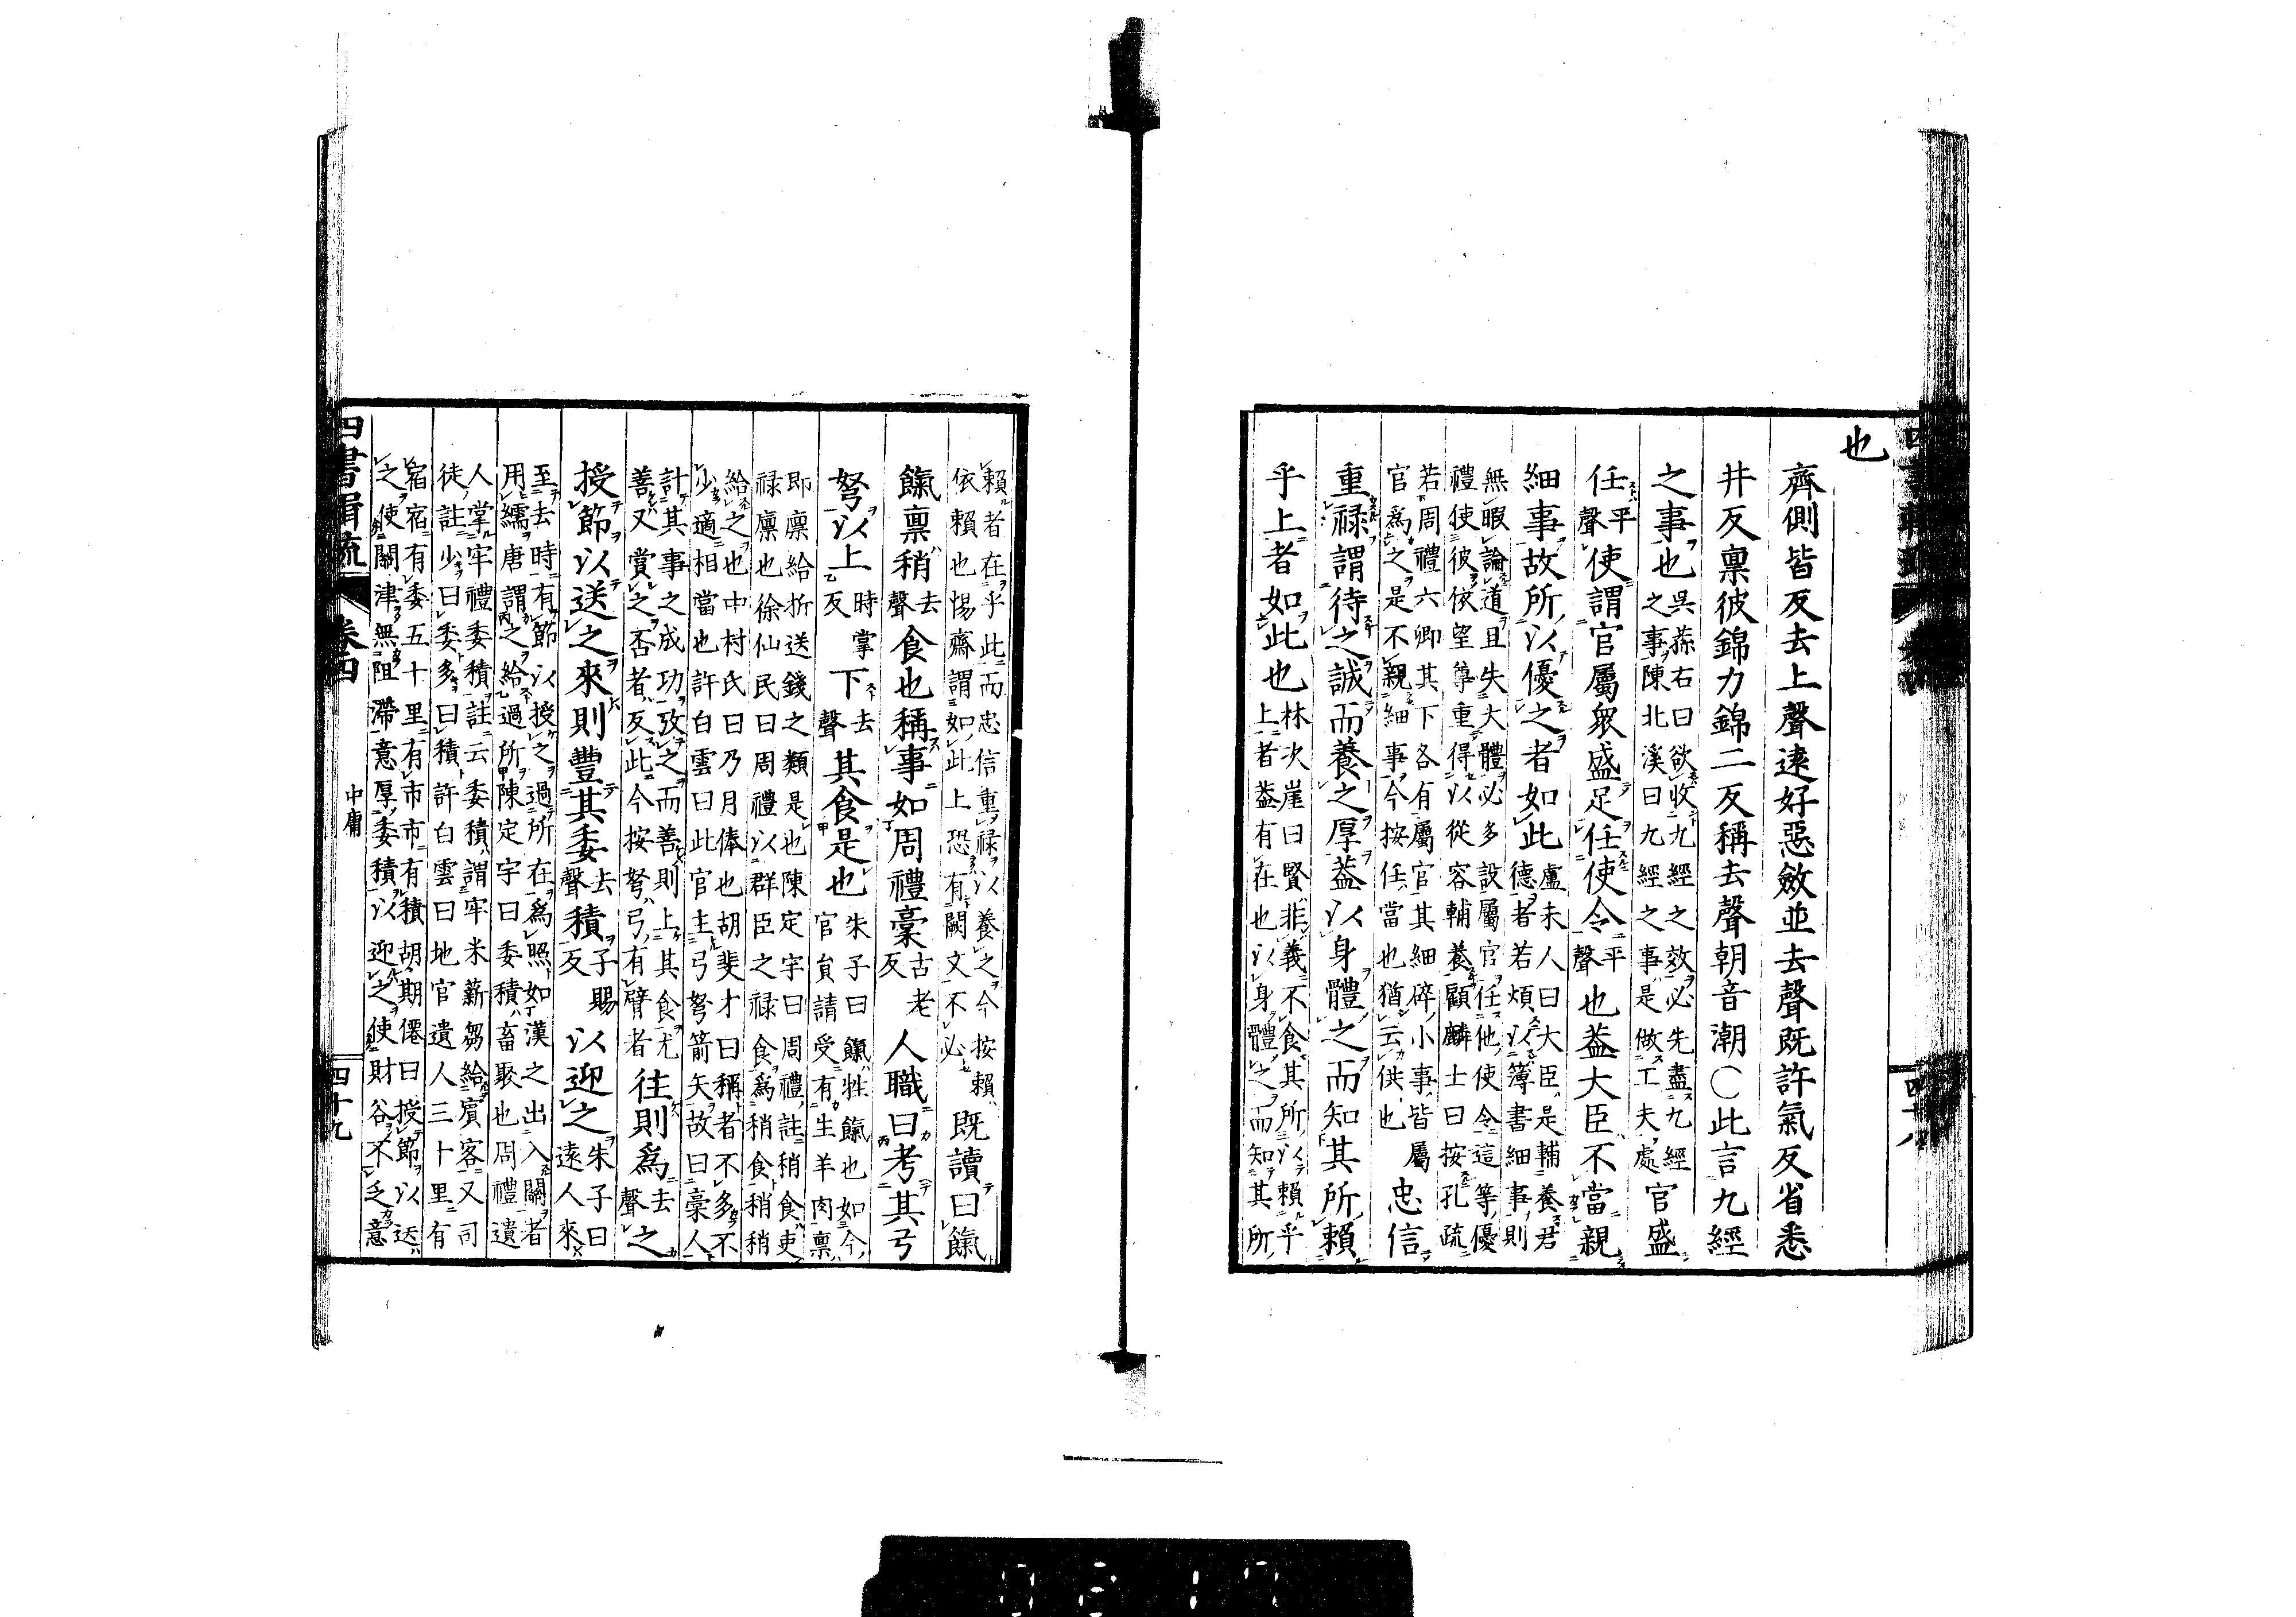 也
齊側皆反去上聲遠好惡斂並去聲既許氣反省悉
井反稟彼錦力錦二反稱去聲朝音潮○此言九經
之事也吳蓀右曰欲收九經之效必先盡九經
之事陳北溪曰九經之事是做工夫處官盛
任平聲使謂官屬衆盛足任使令平聲也蓋大臣不當親
細事故所以優之者如此盧未人曰大臣是輔養君
德者若煩以簿書細事則
無暇論道且失大體必多設屬官任他使令這等優
禮使彼依望尊重得以從容輔養顧麟士曰按孔疏
若周禮六卿其下各有屬官其細碎小事皆屬
官爲之是不親細事今按任當也猶云供也忠信
重祿謂待之誠而養之厚蓋以身體之而知其所賴
乎上者如此也林次崖曰賢非義不食其所以賴乎
上者蓋有在也以身體之而知其所
賴者在乎此而忠信重祿以養之今按賴
依賴也惕齋謂如此上恐有闕文不必既讀曰餼
餼稟稍去聲食也稱事如周禮稾古老反人職曰考其弓
弩以上時掌反下去聲其食是也朱子曰餼牲餼也如今
官員請受有生羊肉稟
即稟給折送錢之類是也陳定宇曰周禮註稍食吏
祿廩也徐仙民曰周禮以群臣之祿食爲稍食稍稍
給之也中村氏曰乃月俸也胡斐才曰稱者不多不
少適相當也許白雲曰此官主弓弩箭矢故曰稾人
計其事之成功攷之而善則上其食尤
善又賞之否者反此今按弩弓有臂者往則爲去聲之
授節以送之來則豐其委去聲積子賜反以迎之朱子曰
遠人來
至去時有節以授之過所在爲照如漢之出入關者
用繻唐謂之給過所陳定宇曰委積畜聚也周禮遺
人掌牢禮委積註云委積謂牢米薪芻給賓客又司
徒註少曰委多曰積許白雲曰地官遺人三十里有
宿宿有委五十里有市市有積胡期僊曰授節以送
之使關津無阻滯意厚委積以迎之使財谷不乏意
四書輯疏　卷四　中庸　四十九